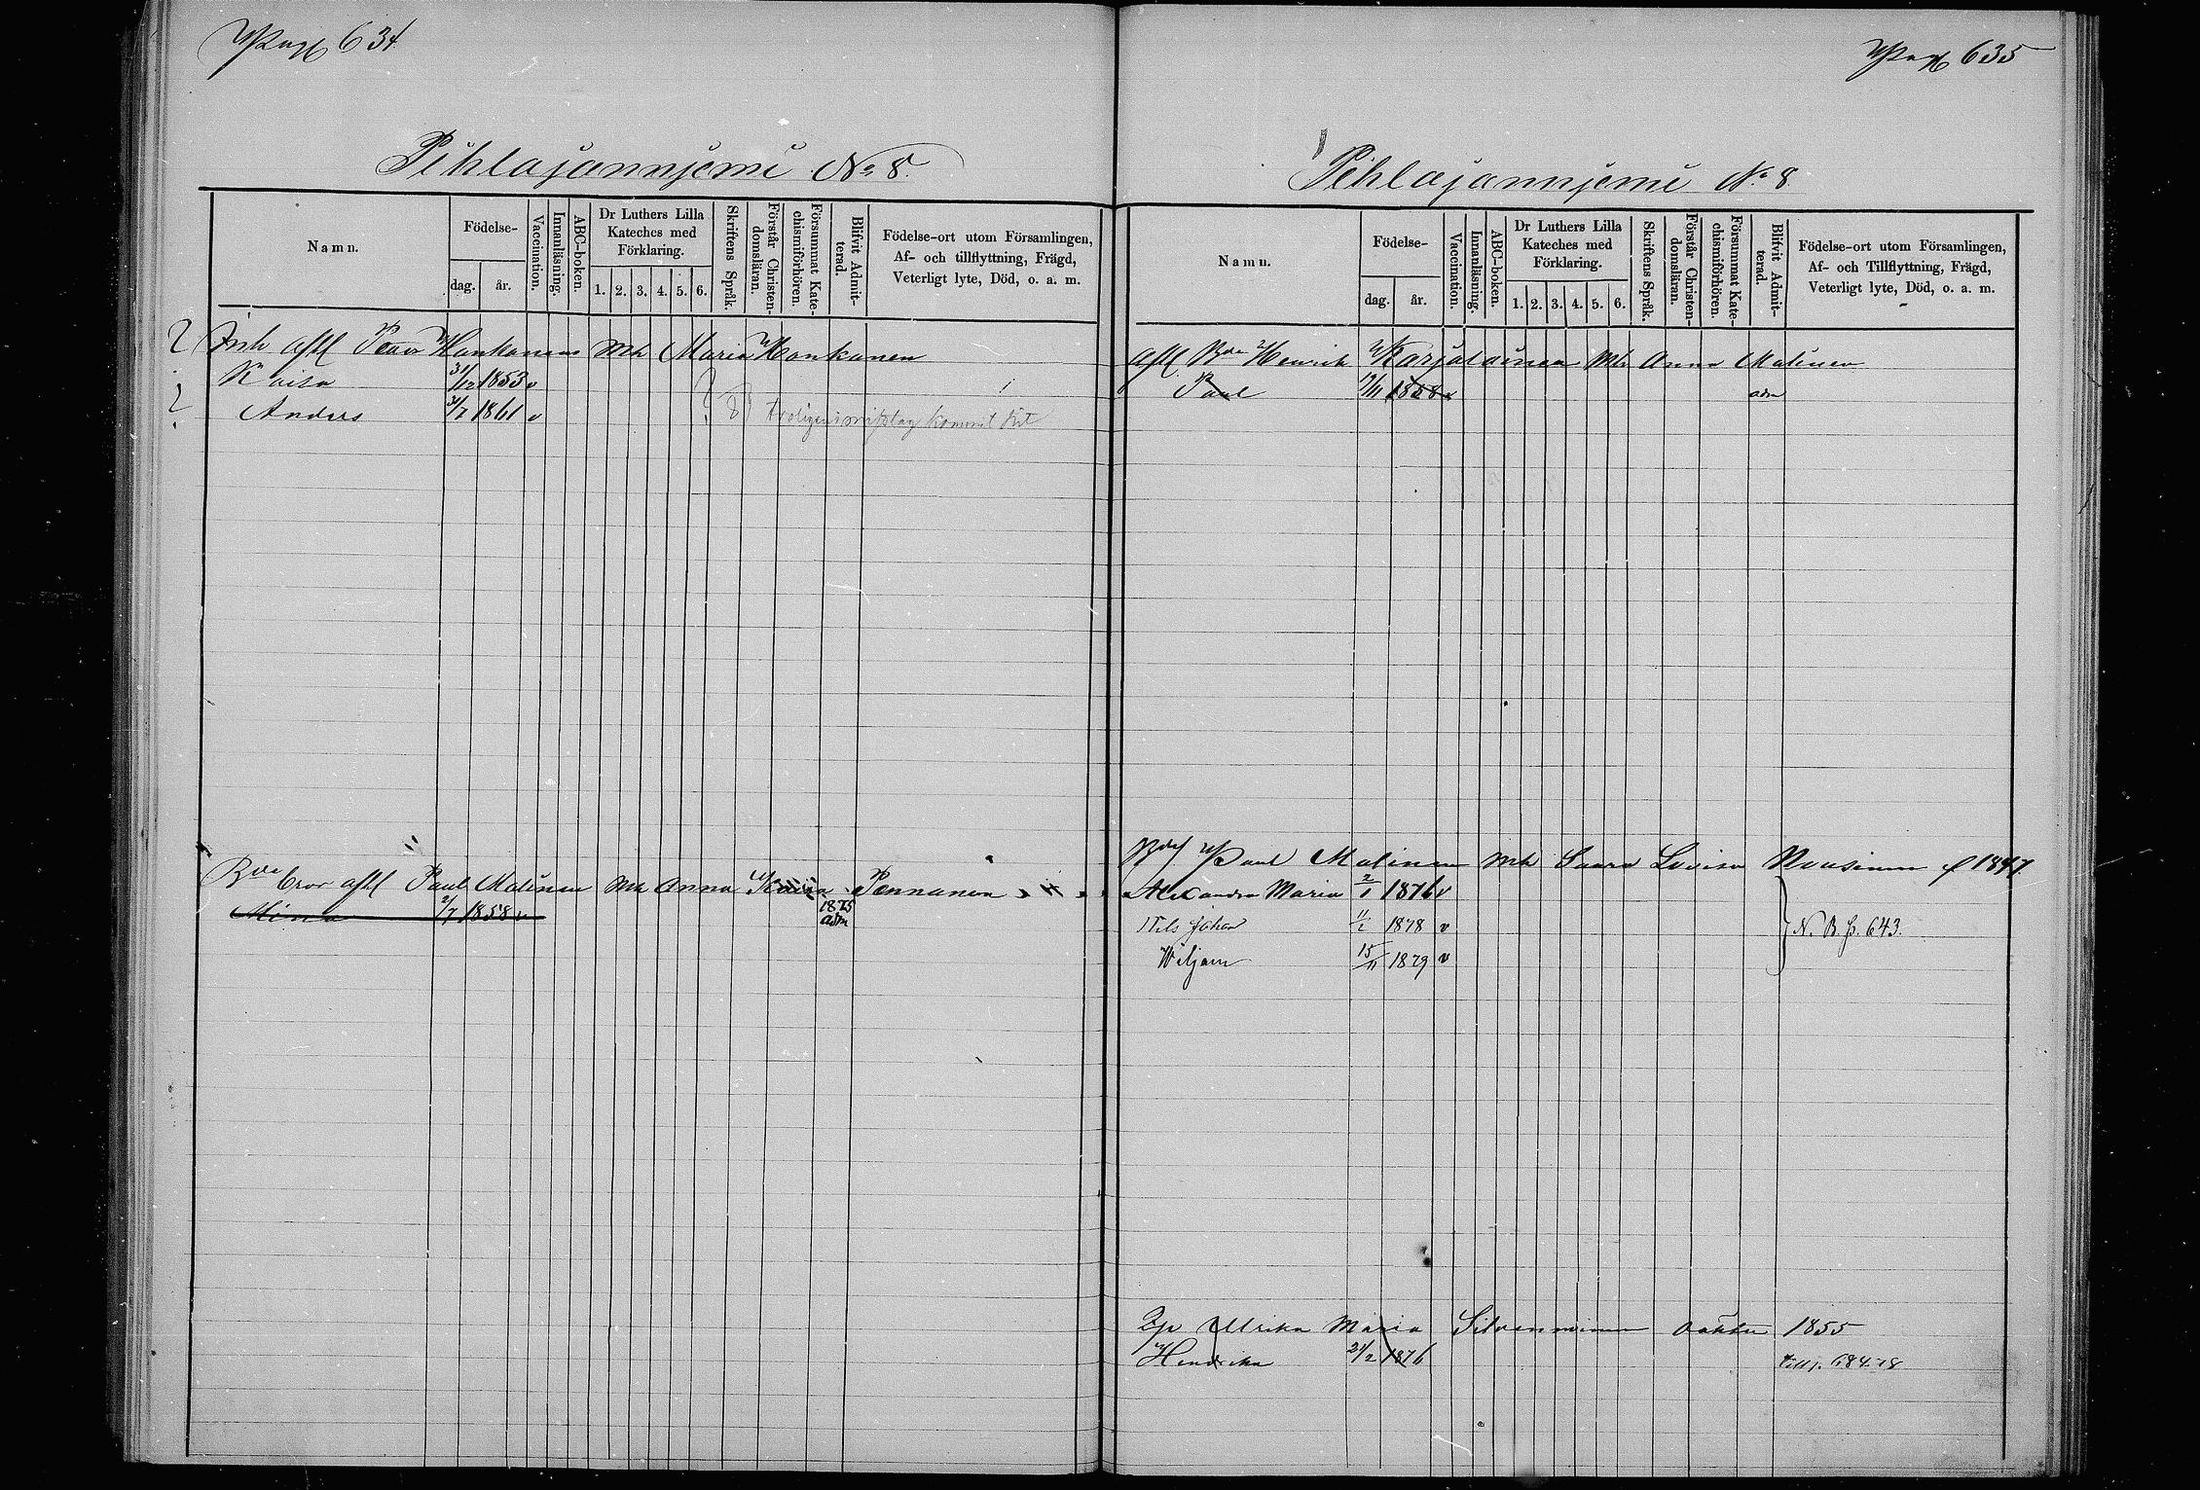 Pag 634
Pihlajanniemi No 8.
Namn.
Födelse-
dag.
år.
Vaccination.
Innanläsning.
ABC-boken.
Dr Luthers Lilla
Kateches med
Förklaring.
1. 2. 3. 4. 5. 6.
Skriftens Språk.
Förstår Christen-
domsläran.
Försummat Kate-
chismiförhören.
Blifvit Admit-
terad.
Födelse-ort utom Församlingen,
Af- och tillflyttning, Frägd,
Veterligt lyte, Död, o. a. m.
? Inh aftl Hankanens mh Maria Hankanen
Kaisa 31/12 1853 v
? Anders 31/7 1861 v ? troligen misstag kommit hit
Bde bror aftl Paul Malinen mh Anna Kaisa Pennanen
Mina 2/7 1858 v 1875
adm
Pag 635
Pihlajanniemi No 8
Namn.
Födelse-
dag.
år.
Vaccination.
Innanläsning.
ABC-boken.
Dr Luthers Lilla
Kateches med
Förklaring.
1. 2. 3. 4. 5. 6.
Skriftens Språk.
Förstår Christen-
domsläran.
Försummat Kate-
chismiförhören.
Blifvit Admit-
terad.
Födelse-ort utom Församlingen,
Af- och Tillflyttning, Frägd,
Veterligt lyte, Död, o. a. m.
aftl Bde Henrik Karjalainen mh Anna Malinen
Paul 17/11 1858 v adm
Paul Malinen mh Saara Lovisa f 1847
Alexandra Maria 2/1 1876 v
Nils Johan 11/2 1878 v N. B. p. 643.
Wiljam 15/11 1879 v
Ulrika Maria Silvennoinen 1855
Hendrika 21/2 1876 684